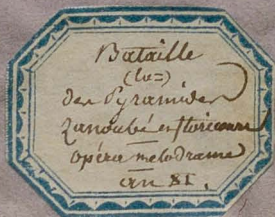 Bataille
(la=)
des Pyramides
Zanoubé et Floricourt
opéra mélodrame
an XI.